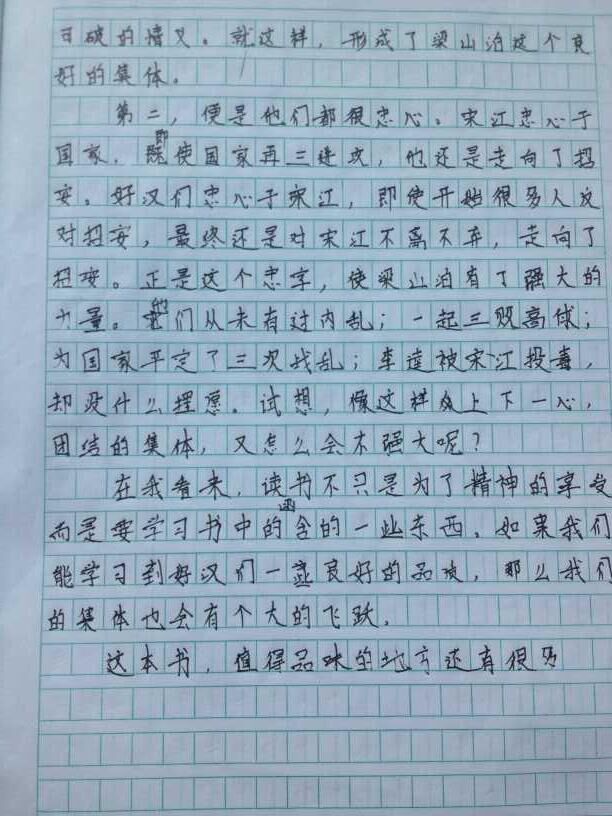 可破的情义。就这样，形成了梁山泊这个良
好的集体。
第二，便是他们都很忠心。宋江忠心于
国家，即使国家再三进攻，他还是走向了招
安。好汉们忠心于宋江，即使开始很多人反
对招安，最终还是对宋江不离不弃，走向了
招安。正是这个忠字，使梁山泊有了强大的
力量。他们从未有过内乱；一起三败高俅；
为国家平定了三次战乱；李逵被宋江投毒，
却没什么埋怨。试想，像这样众上下一心，
团结的集体，又怎么会不强大呢？
在我看来，读书不只是为了精神的享受
而是要学习书中的函含的一些东西。如果我们
能学习到好汉们一些良好的品质，那么我们
的集体也会有个大的飞跃。
这本书，值得品味的地方还有很多